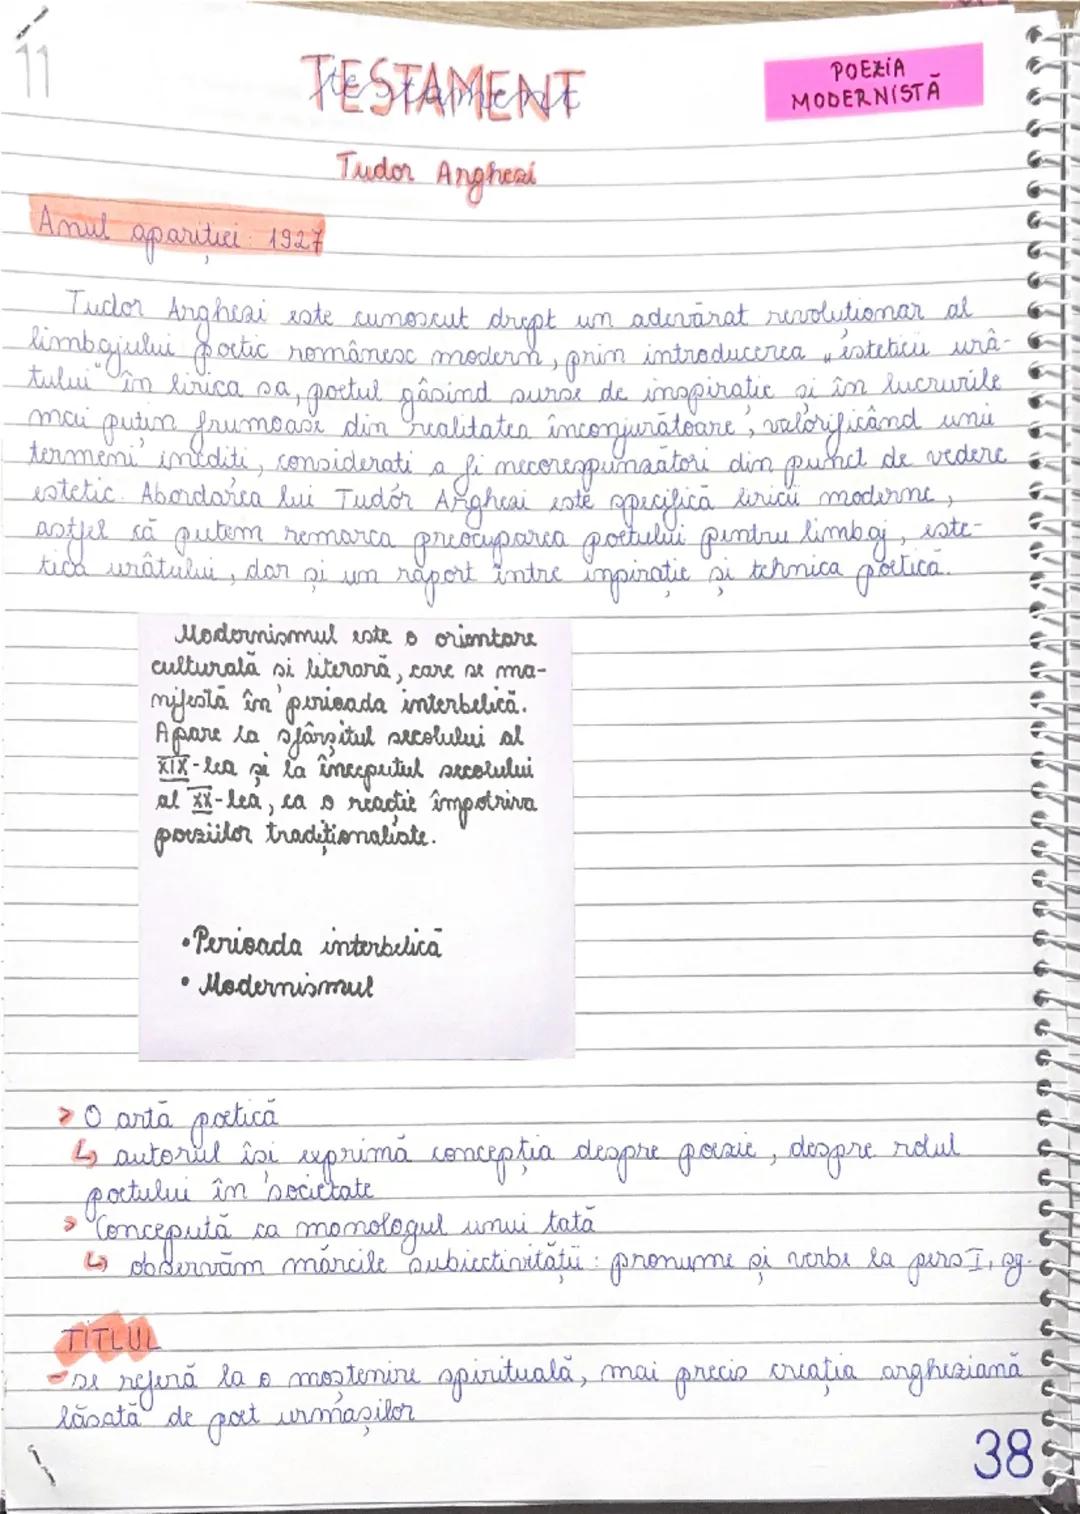 11
TESTAMENT
Testament
POEZIA
MODERNISTĂ
Tudor Arghezi
Anul apariției: 1927
Tudor Arghezi este cunoscut drept un adevărat revoluționar al
limbajului poetic românesc modern, prin introducerea „esteticii urâ-
tului" în lirica sa, poetul găsind surse de inspirație și în lucrurile
mai puțin frumoase din realitatea înconjurătoare, valorificând unii
termeni inediți, considerați a fi necorespunzători din punct de vedere
estetic. Abordarea lui Tudor Arghezi este specifică liricii moderne,
astfel că putem remarca preocuparea poetului pentru limbaj, este-
tica urâtului, dar și un raport între inpirație și tehnica poetică.
Modernismul este o orientare
culturală și literară, care se ma-
nifestă în perioada interbelică.
Apare la sfârșitul secolului al
XIX-lea și la începutul secolului
al XX-lea, ca o reacție împotriva
poeziilor tradiționaliste.
• Perioada interbelică
• Modernismul
> O artă poetică
↳ autorul își exprimă concepția despre poezie, despre rolul
poetului în societate
> Concepută ca monologul unui tată
↳ observăm mărcile subiectivității: pronume și verbe la pers I, sg.
TITLUL
- se referă la o moștenire spirituală, mai precis creația argheziană
lăsată de poet urmașilor
38